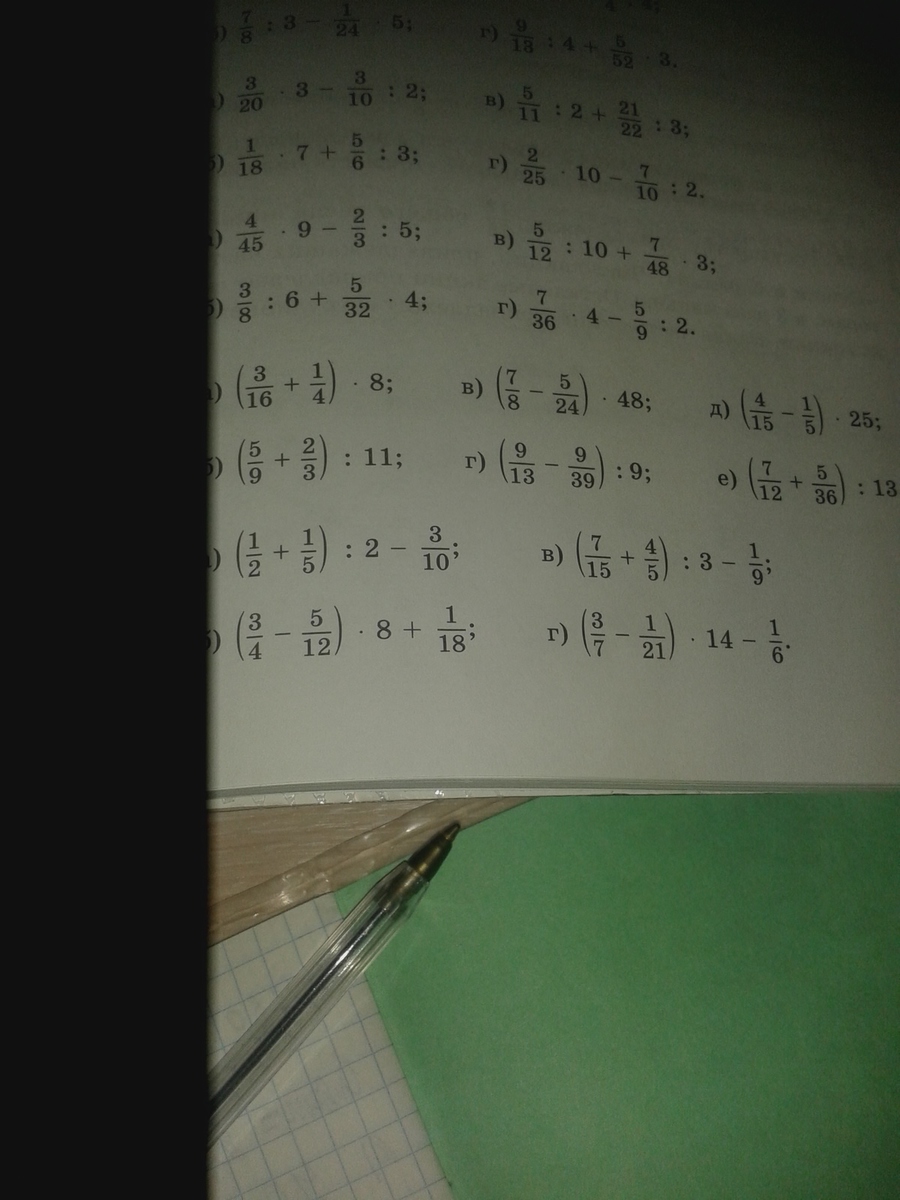 7/8 : 3 − 1/24 · 5; г) 9/13 : 4 + 5/52 · 3.
3/20 · 3 − 3/10 : 2; в) 5/11 : 2 + 21/22 : 3;
б) 1/18 · 7 + 5/6 : 3; г) 2/25 · 10 − 7/10 : 2.
4/45 · 9 − 2/3 : 5; в) 5/12 : 10 + 7/48 · 3;
б) 3/8 : 6 + 5/32 · 4; г) 7/36 · 4 − 5/9 : 2.
(3/16 + 1/4) · 8; в) (7/8 − 5/24) · 48; д) (4/15 − 1/5) · 25;
б) (5/9 + 2/3) : 11; г) (9/13 − 9/39) : 9; е) (7/12 + 5/36) : 13
(1/2 + 1/5) : 2 − 3/10; в) (7/15 + 4/5) : 3 − 1/9;
б) (3/4 − 5/12) · 8 + 1/18; г) (3/7 − 1/21) · 14 − 1/6.